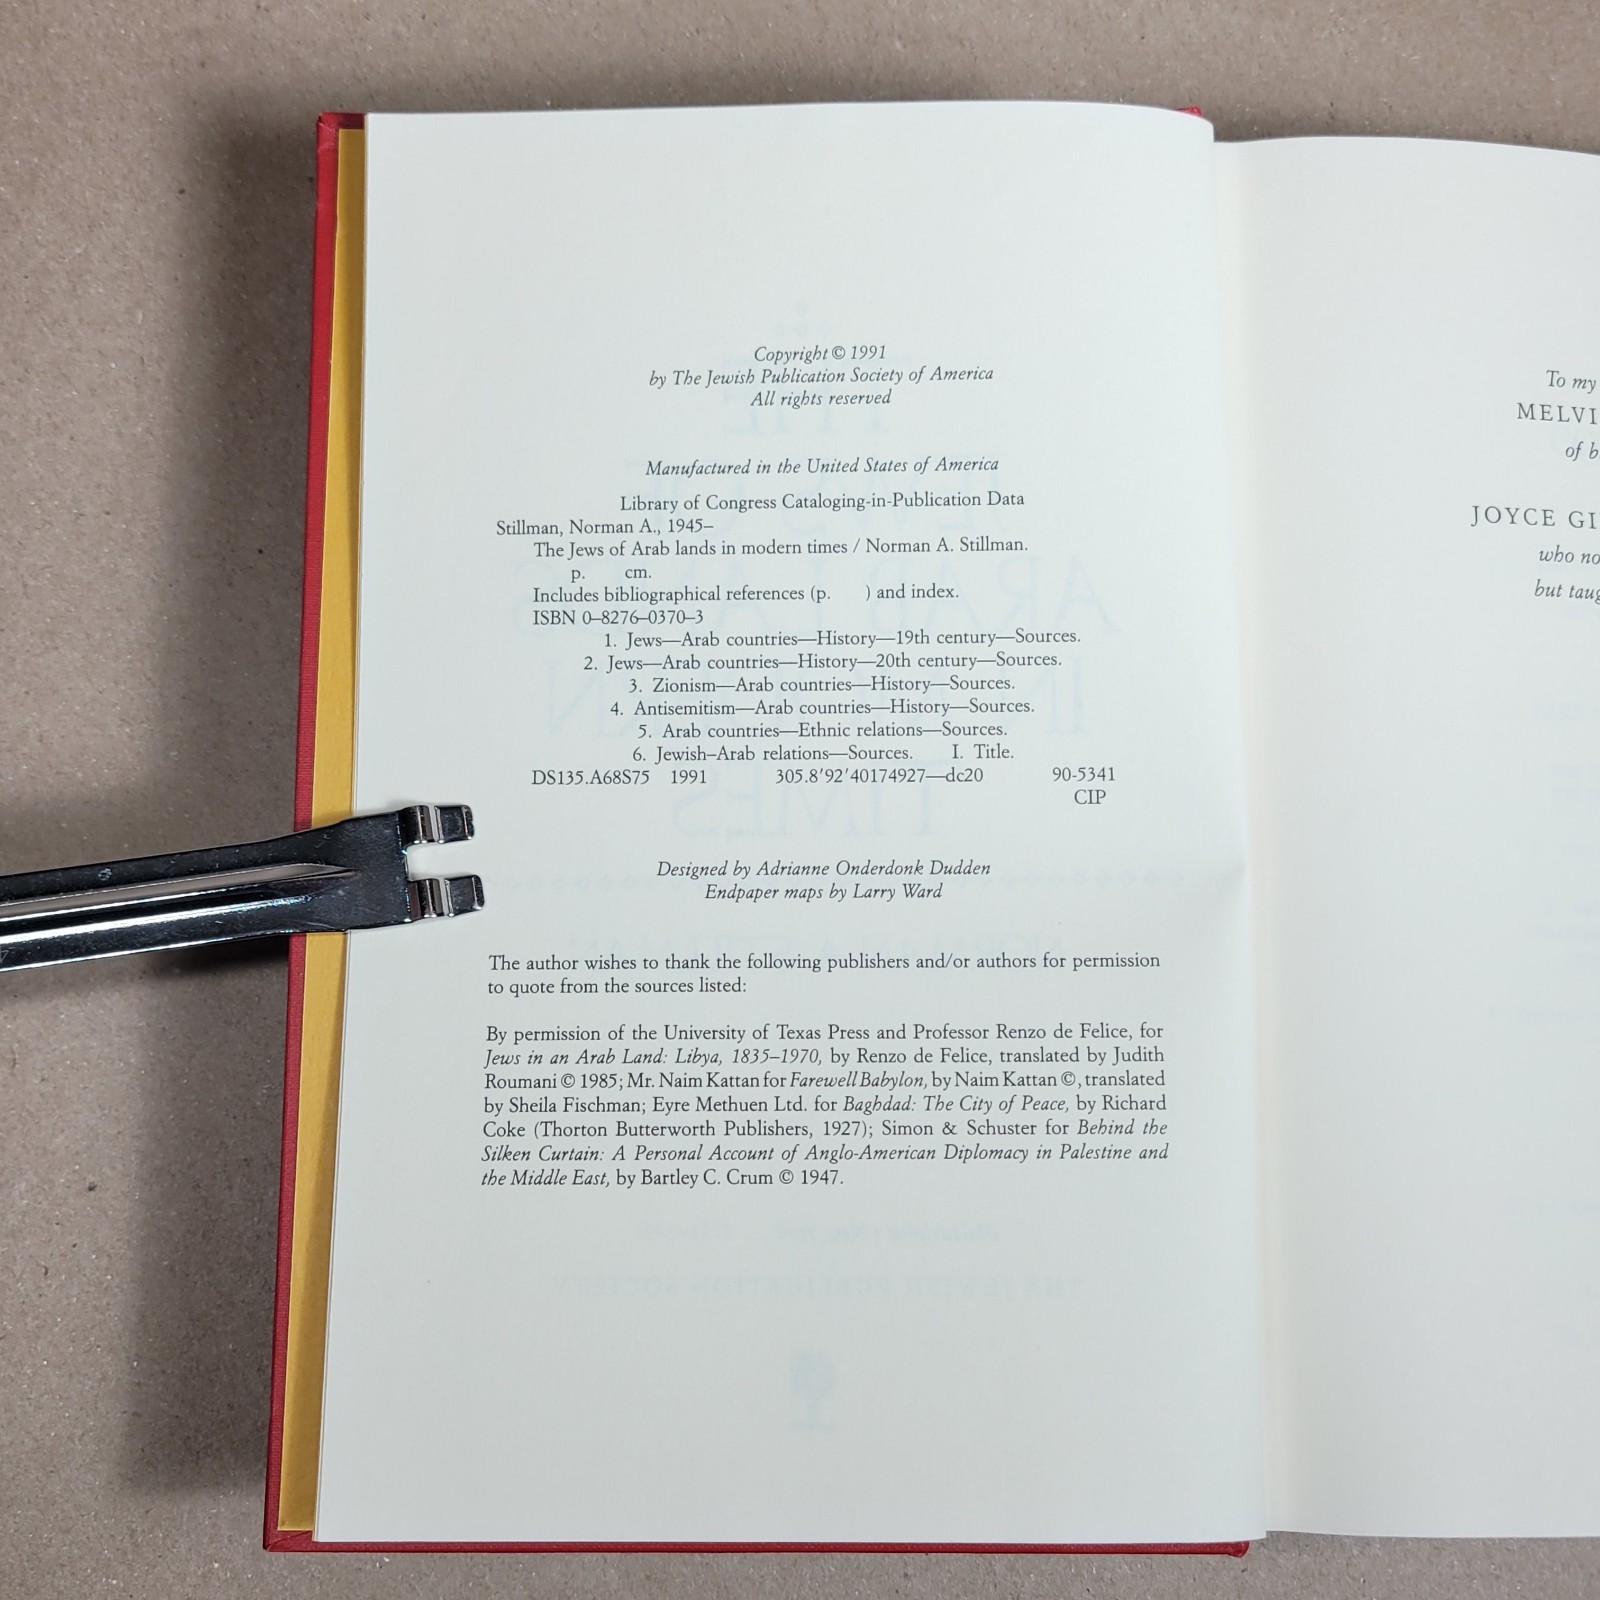 Copyright © 1991
by The Jewish Publication Society of America
All rights reserved
Manufactured in the United States of America
Library of Congress Cataloging-in-Publication Data
Stillman, Norman A., 1945–
The Jews of Arab lands in modern times / Norman A. Stillman.
p. cm.
Includes bibliographical references (p. ) and index.
ISBN 0–8276–0370–3
1. Jews—Arab countries—History—19th century—Sources.
2. Jews—Arab countries—History—20th century—Sources.
3. Zionism—Arab countries—History—Sources.
4. Antisemitism—Arab countries—History—Sources.
5. Arab countries—Ethnic relations—Sources.
6. Jewish–Arab relations—Sources. I. Title.
DS135.A68S75 1991 305.8′92′40174927—dc20 90-5341
CIP
Designed by Adrianne Onderdonk Dudden
Endpaper maps by Larry Ward
The author wishes to thank the following publishers and/or authors for permission
to quote from the sources listed:
By permission of the University of Texas Press and Professor Renzo de Felice, for
Jews in an Arab Land: Libya, 1835–1970, by Renzo de Felice, translated by Judith
Roumani © 1985; Mr. Naim Kattan for Farewell Babylon, by Naim Kattan ©, translated
by Sheila Fischman; Eyre Methuen Ltd. for Baghdad: The City of Peace, by Richard
Coke (Thorton Butterworth Publishers, 1927); Simon & Schuster for Behind the
Silken Curtain: A Personal Account of Anglo-American Diplomacy in Palestine and
the Middle East, by Bartley C. Crum © 1947.
To my
MELVI
of b
JOYCE GI
who no
but taug